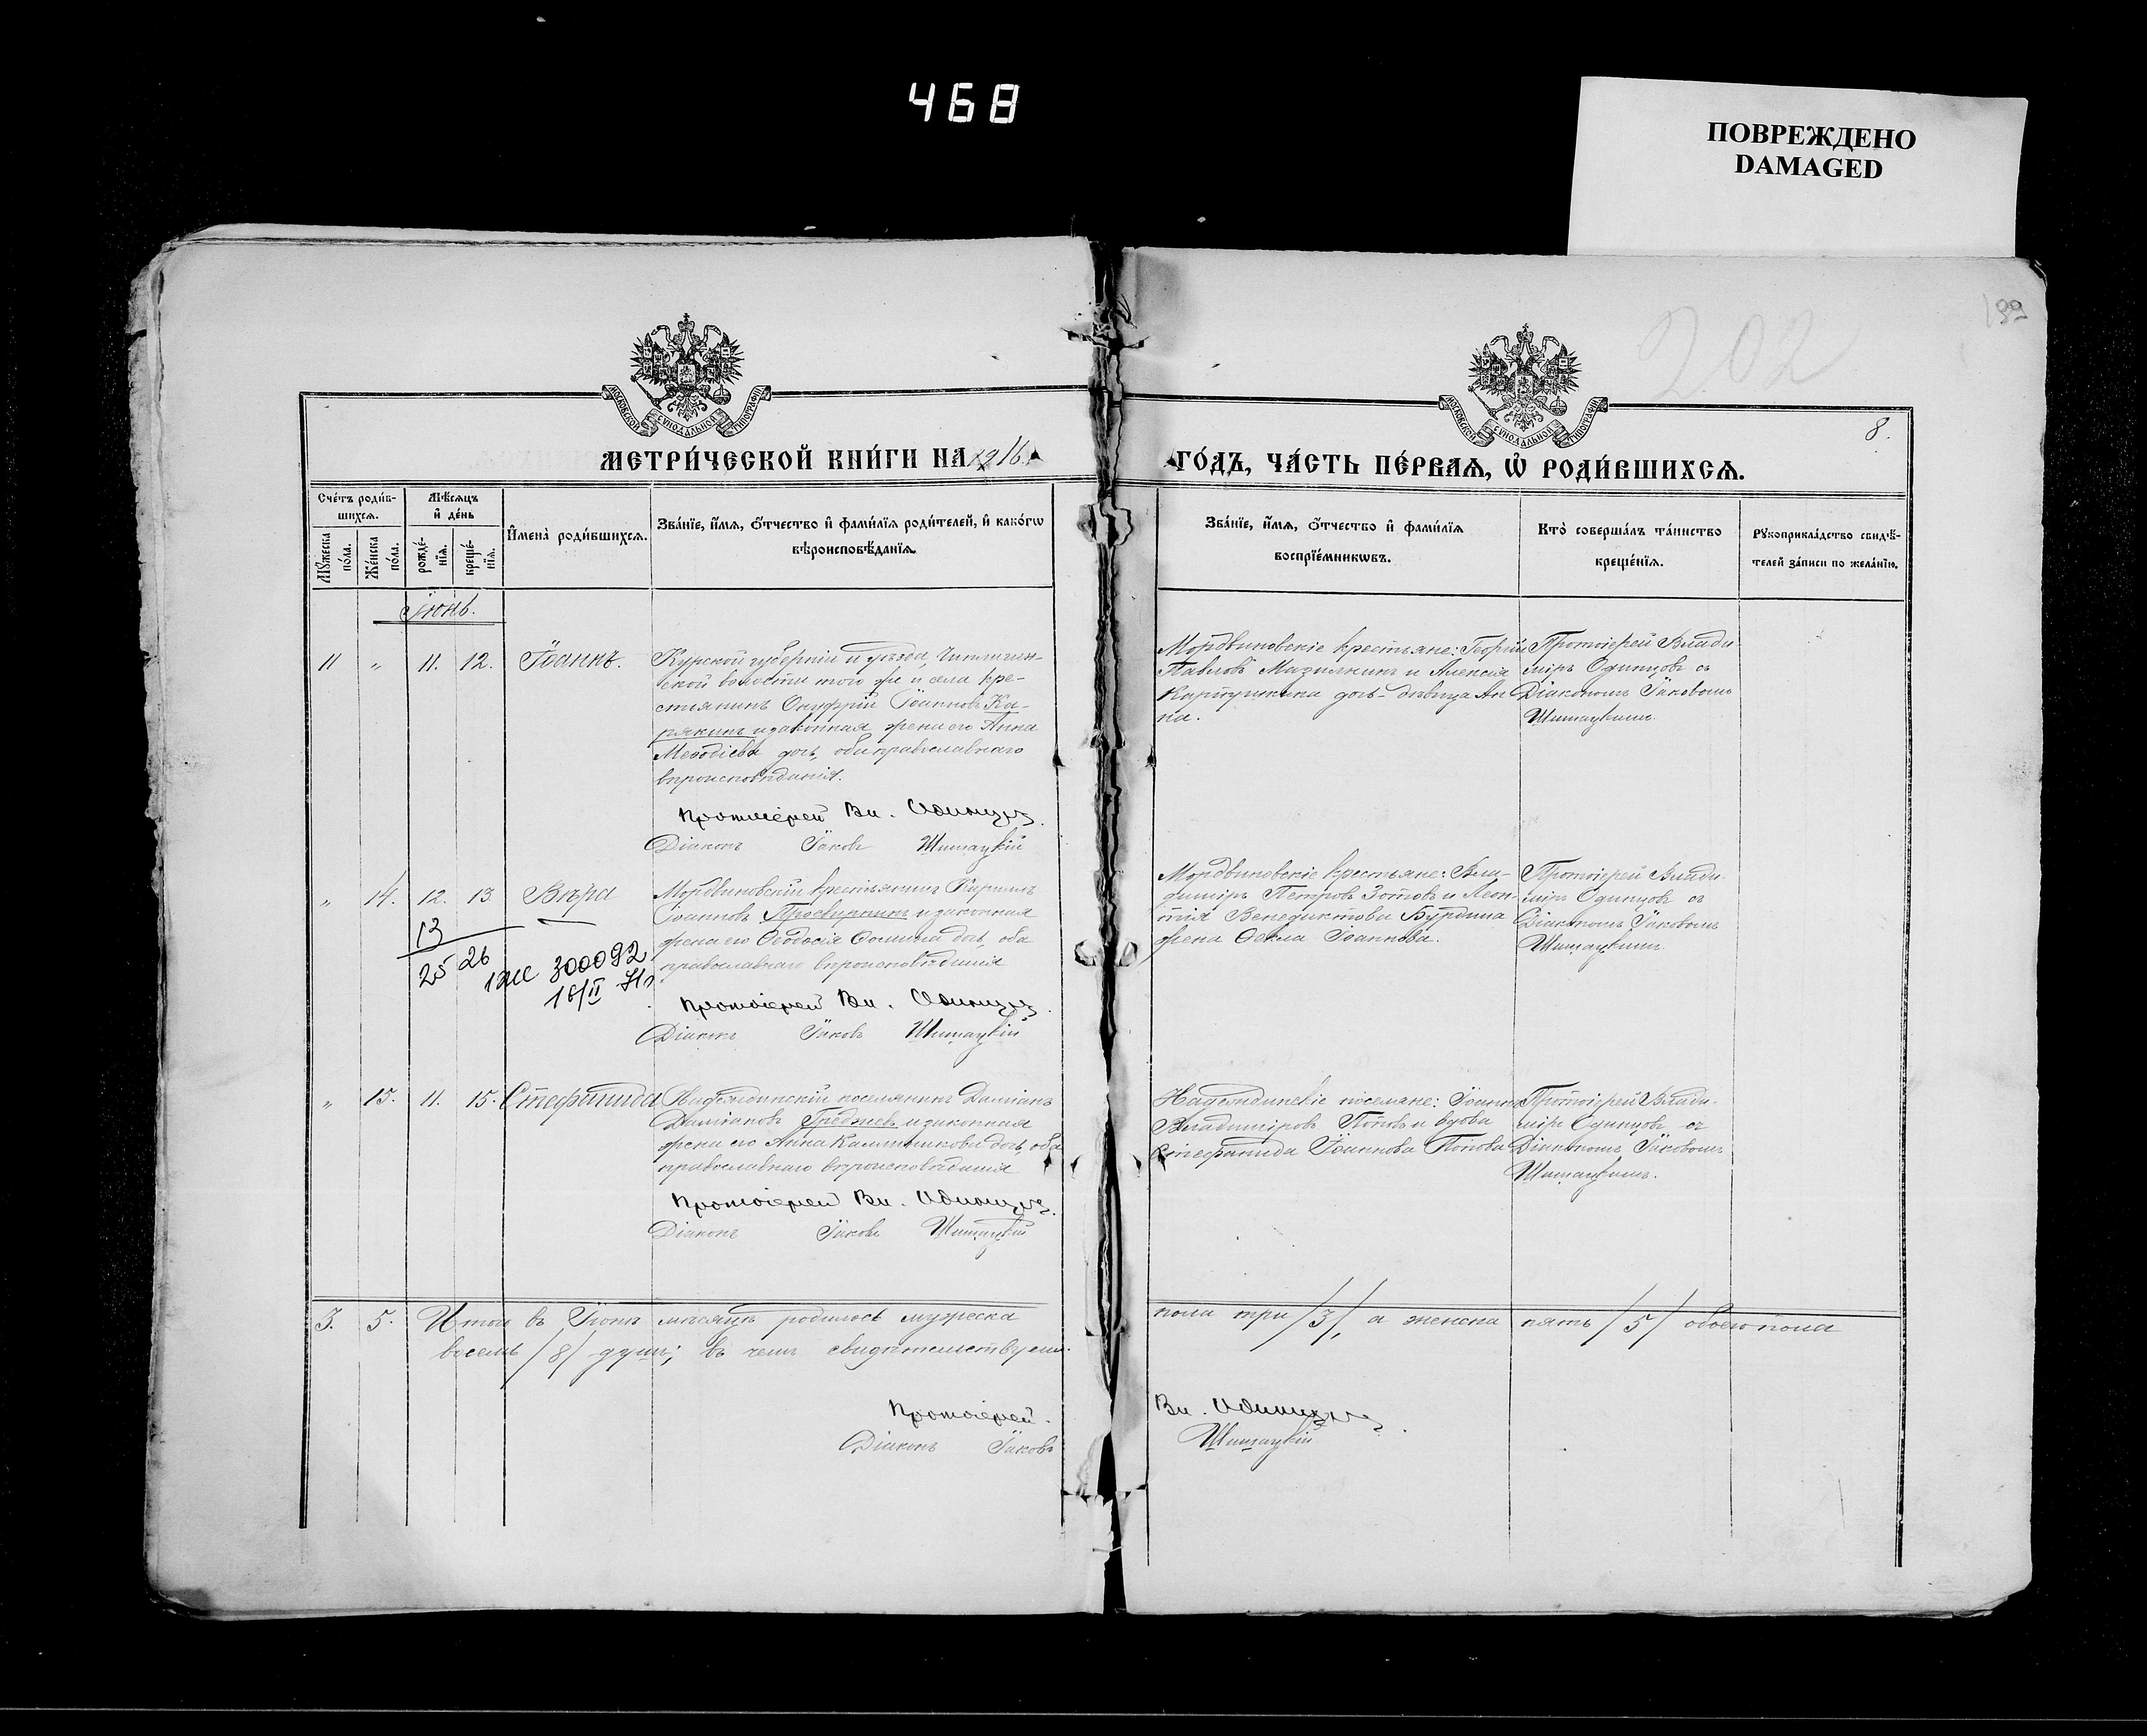 468
ПОВРЕЖДЕНО
DAMAGED
199
202
МОСКОВСКОЙ СѴНОДАЛЬНОЙ ТИПОГРАФІИ
МОСКОВСКОЙ СѴНОДАЛЬНОЙ ТИПОГРАФІИ
8.
МЕТРИ́ЧЕСКОЙ КНИ́ГИ НА 1916
ГО́ДЪ, ЧА́СТЬ ПЕ́РВАѦ, Ѡ҆ РОДИ́ВШИХСѦ.
Сче́тъ роди́в-
шихсѧ.
Мѣ́сѧцъ
и҆ де́нь
Мꙋ́жеска по́ла.
Же́нска по́ла.
рожде́-
нїѧ.
креще́-
нїѧ.
И҆мена̀ роди́вшихсѧ.
Зва́нїе, и҆́мѧ, ѻ҆́тчество и҆ фами́лїѧ роди́телей, и҆ како́гѡ
вѣроисповѣ́данїѧ.
Зва́нїе, и҆́мѧ, ѻ҆́тчество и҆ фами́лїѧ
воспрїе́мникѡвъ.
Кто̀ соверша́лъ та́инство
креще́нїѧ.
Рꙋкоприкла́дство свидѣ́-
телей за́писи по жела́нїю.
Іюнь.
11 " 11. 12. Іоаннъ.
Курской губерніи и уѣзда,
ской волости того же и села кре-
стьянинъ Онуфрій Іоанновъ Ка-
рякинъ и законная жена его Анна
Меѳодіева дочь, оба православнаго
вѣроисповѣданія.
Протоіерей Вл. Одинцовъ.
Діаконъ Іаковъ Шишацкій
Мордвиновскіе крестьяне: Георгій
Павловъ Мазилкинъ и Алексія
дочь - дѣвица Ан
на.
Протоіерей Влади-
міръ Одинцовъ съ
Діакономъ Іаковомъ
Шишацкимъ.
" 14. 12. 13. Вѣра
13
25 26
1АЕ 300092
16/II 71г
Мордвиновскій крестьянинъ Кириллъ
Іоанновъ Проскурнинъ и законная
жена его Ѳеодосія Ѳомина дочь, оба
православнаго вѣроисповѣданія
Протоіерей Вл. Одинцовъ.
Діаконъ Іаковъ Шишацкій
Мордвиновскіе крестьяне: Вла-
диміръ Петровъ Зотовъ и Леон-
тія Венедиктова Бурдина
жена Ѳекла Іоаннова.
Протоіерей Влади-
міръ Одинцовъ съ
Діакономъ Іаковомъ
Шишацкимъ.
" 15. 11. 15. Стефанида
Надеждинскій поселянинъ Даміанъ
Даміановъ Гредневъ и законная
жена его Анна Каллиникова дочь, оба
православнаго вѣроисповѣданія
Протоіерей Вл. Одинцовъ.
Діаконъ Іаковъ Шишацкій
Надеждинскіе поселяне: Іоаннъ
Владиміровъ Поповъ и вдова
Стефанида Іоаннова Попова
Протоіерей Влади-
міръ Одинцовъ съ
Діакономъ Іаковомъ
Шишацкимъ.
3. 5. Итого въ Іюнѣ мѣсяцѣ родилось мужеска пола три /3/, а женска пять /5/ обоего пола
восемь /8/ душъ; въ чемъ свидѣтельствуемъ.
Протоіерей Вл. Одинцовъ.
Діаконъ Іаковъ Шишацкій